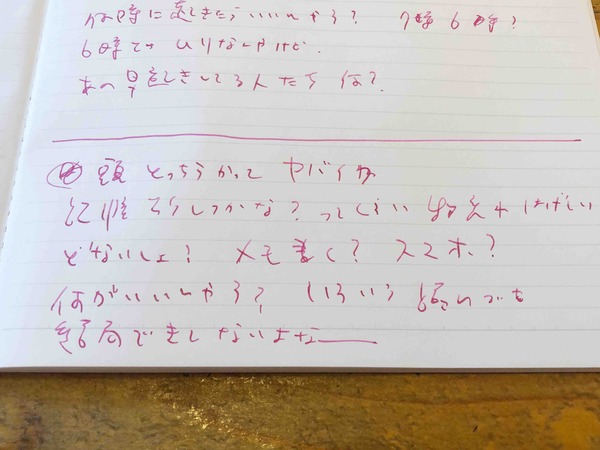 何時に起きたらいいんやろ? 7時6時?
6時でムリなんやけど.
あの早起きしてる人たち何?
頭とっちらかって ヤバイな
記憶そうしつかな?ってくらい
どないしょ? メモ書く? スマホ?
何がいいんやろ? いろいろ
結局できしないよなー